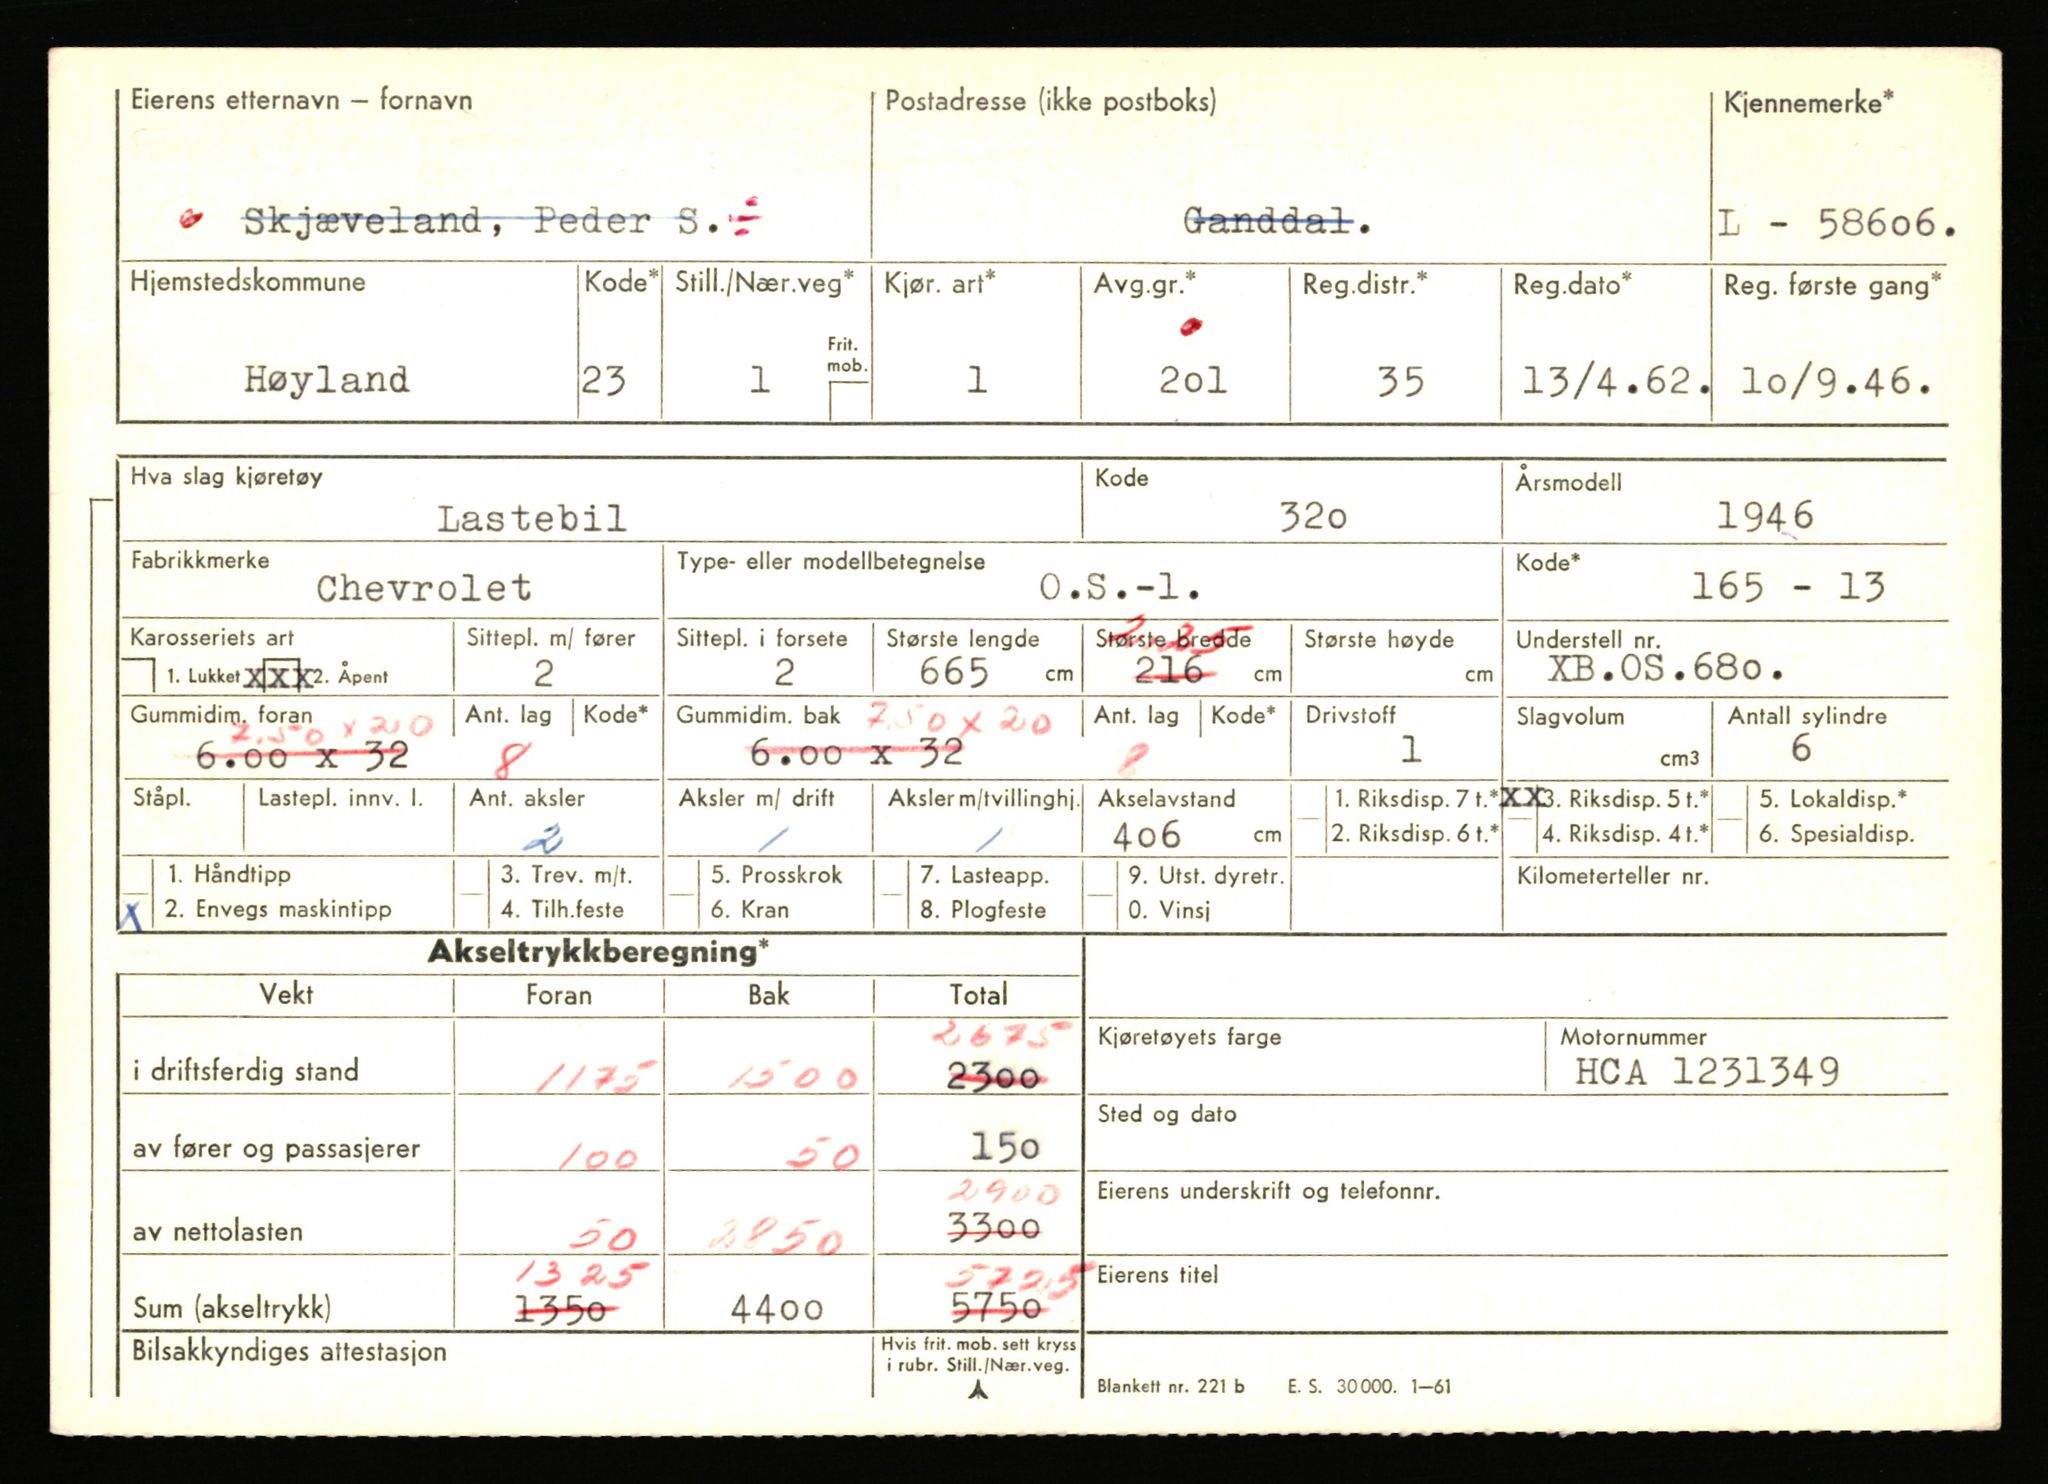 Eierens etternavn — fornavn Postadresse (ikke postboks) Kjennemerke*
Skjæveland, Peder S. Ganddal. L - 58606.
Hjemstedskommune Kode* Still./Nær.veg* Kjør. art* Avg.gr.* Reg.distr.* Reg.dato* Reg. første gang*
Frit. mob.
Høyland 23 1 1 201 35 13/4.62. 10/9.46.
Hva slag kjøretøy Kode Årsmodell
Lastebil 320 1946
Fabrikkmerke Type- eller modellbetegnelse Kode*
Chevrolet O.S.-1. 165 - 13
Karosseriets art Sittepl. m/ fører Sittepl. i forsete Største lengde Største bredde Største høyde Understell nr.
2.25
1. Lukket XXX 2. Åpent 2 2 665 cm 216 cm cm XB.OS.680.
Gummidim. foran Ant. lag Kode* Gummidim. bak Ant. lag Kode* Drivstoff Slagvolum Antall sylindre
7.50 x 20 7.50 x 20
6.00 x 32 8 6.00 x 32 8 1 cm3 6
Ståpl. Lastepl. innv. l. Ant. aksler Aksler m/ drift Aksler m/tvillinghj. Akselavstand 1. Riksdisp. 7 t.* XX 3. Riksdisp. 5 t.* 5. Lokaldisp.*
2 1 1 406 cm 2. Riksdisp. 6 t.* 4. Riksdisp. 4 t.* 6. Spesialdisp.
1. Håndtipp 3. Trev. m/t. 5. Prosskrok 7. Lasteapp. 9. Utst. dyretr. Kilometerteller nr.
X 2. Envegs maskintipp 4. Tilh.feste 6. Kran 8. Plogfeste 0. Vinsj
Akseltrykkberegning*
Vekt Foran Bak Total
2675
i driftsferdig stand 1175 1500 2300
Kjøretøyets farge Motornummer
HCA 1231349
av fører og passasjerer 100 50 150
Sted og dato
2900
av nettolasten 50 2850 3300
Eierens underskrift og telefonnr.
1325 5725
Sum (akseltrykk) 1350 4400 5750
Eierens titel
Bilsakkyndiges attestasjon
Hvis frit. mob. sett kryss
i rubr. Still./Nær.veg.
Blankett nr. 221 b E. S. 30 000. 1—61